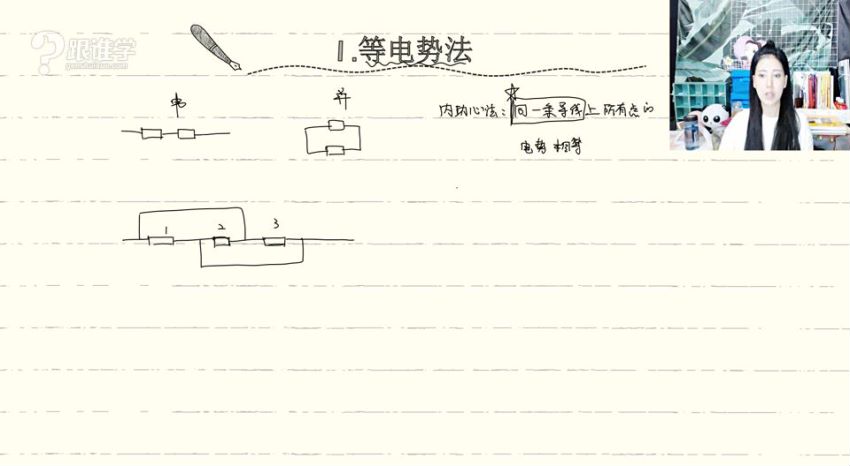 跟谁学
genshuixue.com
1.等电势法
串
并
内功心法：同一条导线上所有点的
电势相等
1 2 3